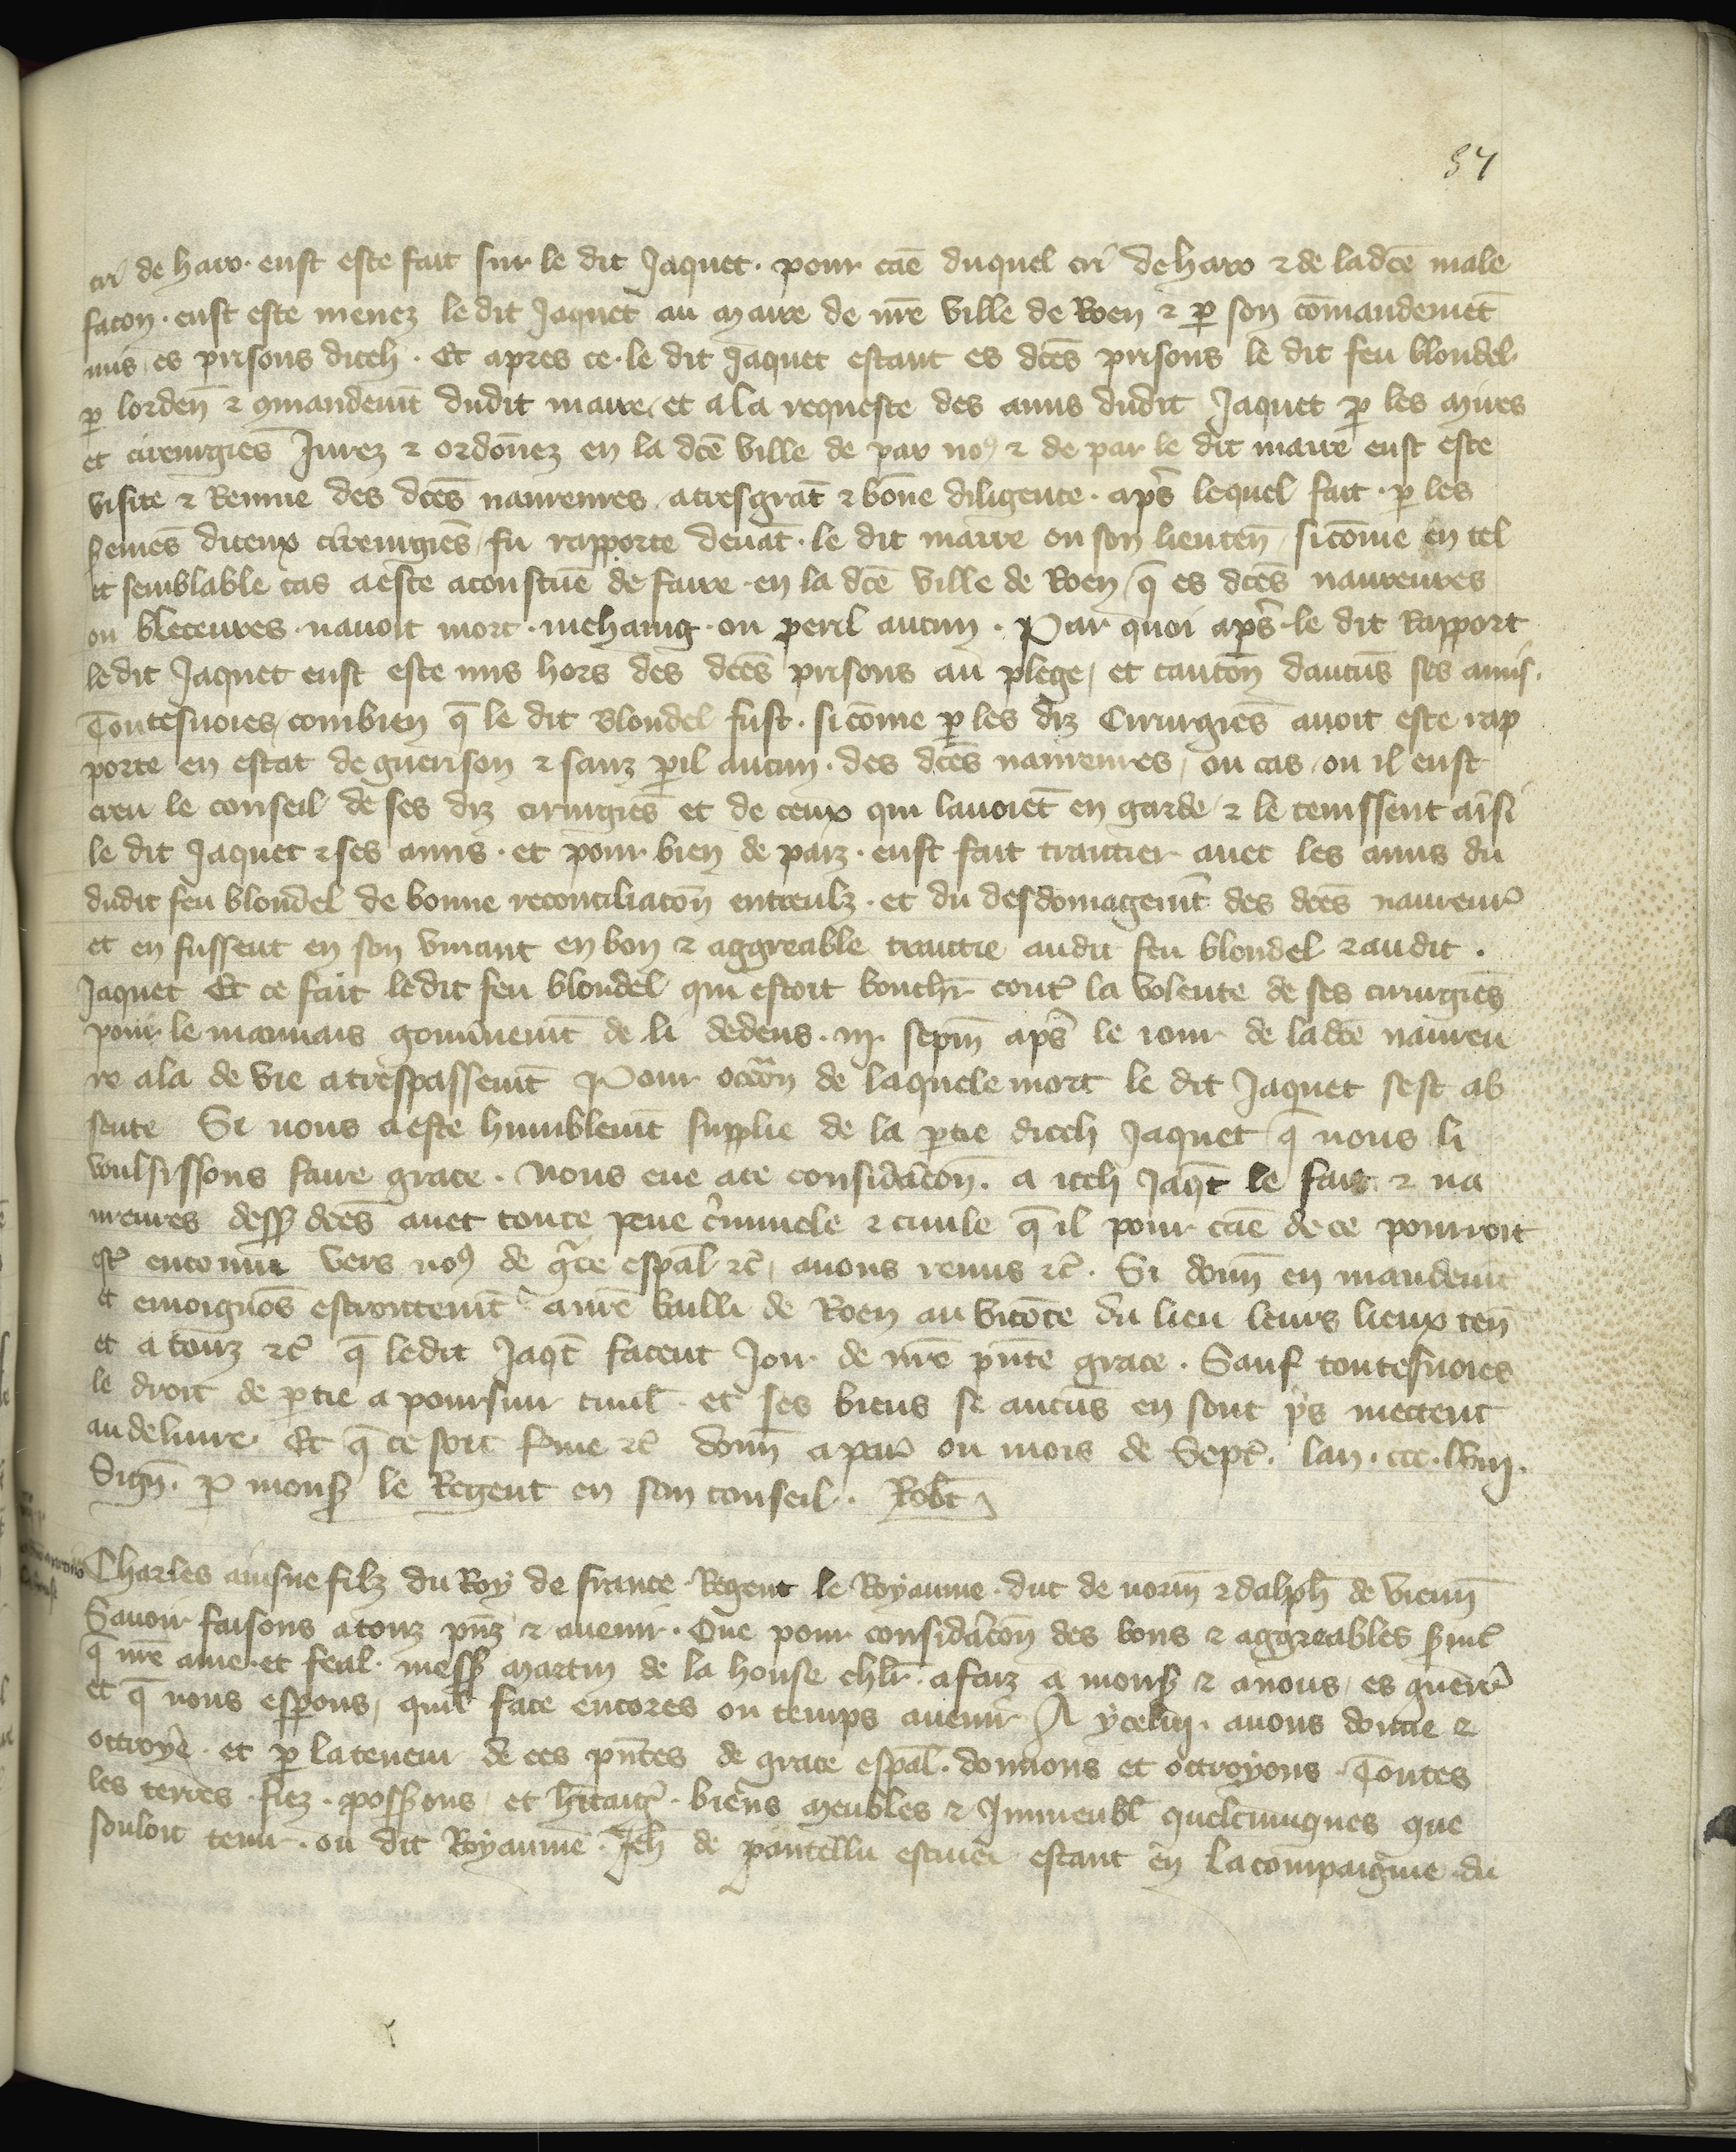 57
cri de haro eust este fait sur le dit Jaquet. pour cāe duquel cri de haro ⁊ de ladcē male
facon. eust este menez le dit Jaquet au maire de nrē ville de Roen ⁊ p son cōmandemēt
mis es prisons diceh. Et apres ce. le dit Jaquet estant es dcēs prisons le dit feu blondel
p lordeñ ⁊ ꝯmandemīt dudit maire, et a la requeste des amis dudit Jaquet p les mires
et cirurgiēs Jurez ⁊ ordōnez en la dcē ville de par noꝰ ⁊ de par le dit maire eust este
visite ⁊ Remue des dcēs navreures a tresgrāt ⁊ bōne diligence. aps̄ lequel fait. p les
s̄emēs diceux cirurgiēs fu rapporte devāt. le dit maire ou son lieuteñ si cōme en tel
et semblable cas a este acoustūe de faire en la dcē ville de Roen q̄ es dcēs navreures
ou bleceures. navoit mort. mehaing. ou peril aucun. Par quoi aps̄ le dit Rapport
le dit Jaquet eust este mis hors des dcēs prisons au plege, et caucōn daucūs ses amis.
Toutesvoies, combien q̄ le dit Blondel fust. si cōme p les diz Cirurgiēs avoit este rap
porte en estat de guerison ⁊ sanz pil aucun. des dcēs navreures, ou cas, ou il eust
creu le conseil de ses diz cirurgiēs et de ceux qui lavoiēt en garde, ⁊ le tenissent aīsi
le dit Jaquet ⁊ ses amis. et pour bien de paiz. eust fait traitier avec les amis du
dudit feu blondel de bonne reconciliacōn entreulz. et du desdomagemīt des dcēs navreur̄
et en fussent en son vivant en bon ⁊ aggreable traictie audit feu blondel ⁊ audit.
Jaquet Et ce fait le dit feu blondel qui estoit bouchr̄ cont̄ la volente de ses cirurgiēs
pour le mauvais gouṽnemīt de li dedens. iij. sepm̄ aps̄ le iour de ladcē navreu
re ala de vie a trespassemīt Pour occōn de laquele mort le dit Jaquet sest ab
sente Si nous a este humblemīt supplie de la ptie diceh Jaquet q̄ nous li
voulsissons faire grace. Nous eue a ce considacōn. a iceh Jaq̄t le fait ⁊ na
vreures dess̄ dcēs avec toute peine c̄minele ⁊ civile q̄ il pour cāe de ce pourroit
est̄ encouru vers noꝰ de gc̄e espāl ⁊c̄, avons remis ⁊c̄. Si donñ en mandemīt
et emoignōs estroitemīt a nrē bailli de Roen au vicōte du lieu leurs lieux teñ
et a touz ⁊c̄ q̄ ledit Jaq̄t facent Joir de nrē pn̄te grace. Sauf toutesvoies
le droit de ptie a poursuir civil̄. et ses biens se aucūs en sont pͥs mettent
au delivre. Et q̄ ce soit f̄me ⁊c̄ donñ a par̄ ou mois de Sept̄. lan. ccc. lviij.
Sigñ. p mons̄ le Regent en son conseil. Rob̄t
Charles ainsne filz du Roy de france Regent le Royaume. duc de norm̄ ⁊ dalph̄ de vienñ
Savoir faisons a touz pn̄z ⁊ avenir. Que pour considacōn des bons ⁊ aggreables s̄vic̄
q̄ nrē ame et feal. mess̄ martin de la house chlr̄. a faiz a mons̄ ⁊ a nous, es guerr̄
et q̄ nous espons, quil face encores ou temps avenir A ycelui. avons donne ⁊
octroye. et p la teneur de ces pn̄tes de grace espāl. donnons et octroyons Toutes
les terres. fiez. poss̄ions et hītaiḡ. biens meubles ⁊ Immeubl̄ quelcunques que
souloit tenir. ou dit Royaume. Jeh̄ de pantellu escuier estant en la compaignie du